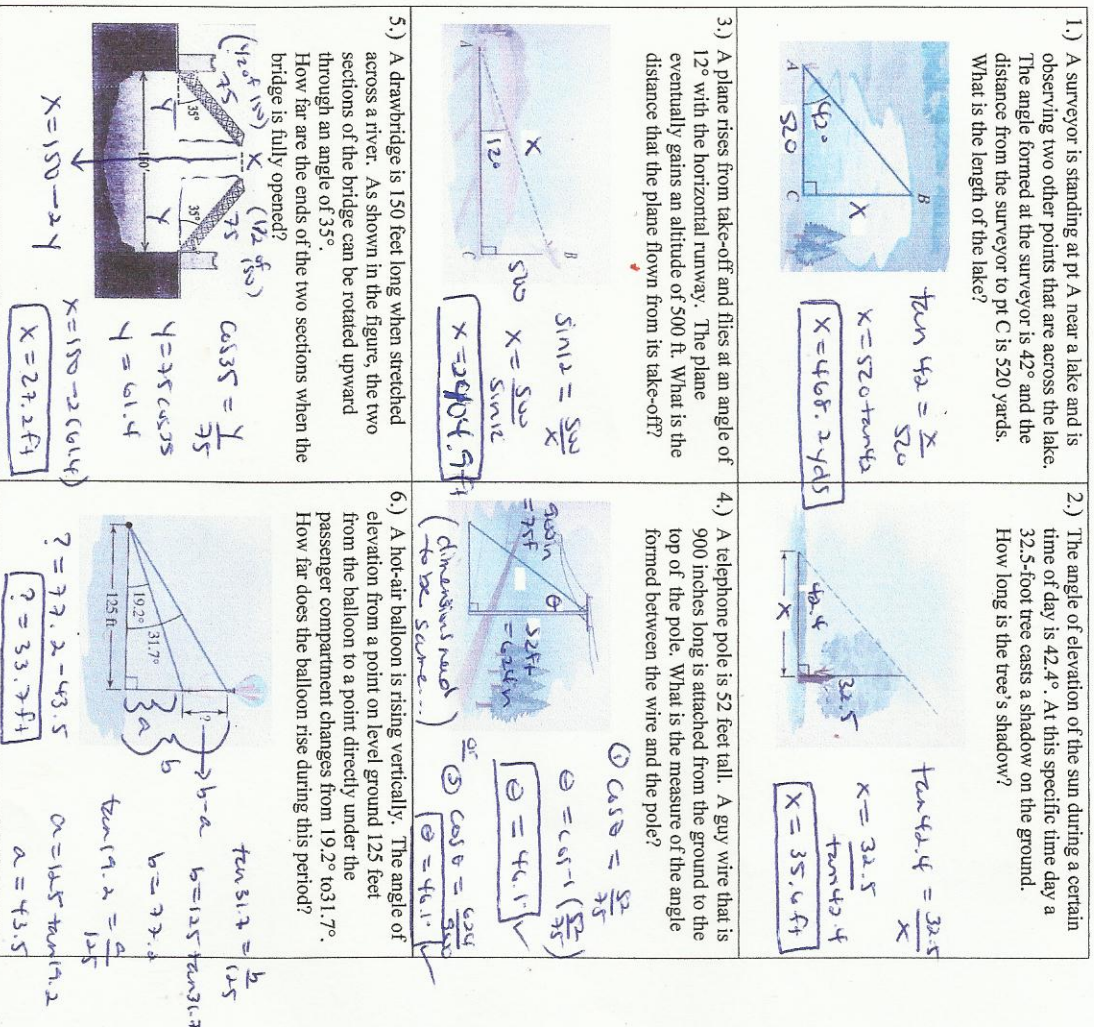 1.) A surveyor is standing at pt A near a lake and is
observing two other points that are across the lake.
The angle formed at the surveyor is 42° and the
distance from the surveyor to pt C is 520 yards.
What is the length of the lake?
B
A
C
42°
520
X
tan 42 = x/520
x = 520 tan 42
x = 468.2 yds
2.) The angle of elevation of the sun during a certain
time of day is 42.4°. At this specific time day a
32.5-foot tree casts a shadow on the ground.
How long is the tree's shadow?
42.4
32.5
x
tan 42.4 = 32.5/x
x = 32.5/tan 42.4
x = 35.6 ft
3.) A plane rises from take-off and flies at an angle of
12° with the horizontal runway. The plane
eventually gains an altitude of 500 ft. What is the
distance that the plane flown from its take-off?
A
B
C
X
12°
500
sin 12 = 500/x
x = 500/sin 12
x = 2404.9 ft
4.) A telephone pole is 52 feet tall. A guy wire that is
900 inches long is attached from the ground to the
top of the pole. What is the measure of the angle
formed between the wire and the pole?
900in
= 75f
θ
52ft
= 624 n
(dimensions need
to be same...)
① cos θ = 52/75
θ = cos-1 (52/75)
θ = 46.1°
or
cos θ = 624/900
θ = 46.1°
5.) A drawbridge is 150 feet long when stretched
across a river. As shown in the figure, the two
sections of the bridge can be rotated upward
through an angle of 35°.
How far are the ends of the two sections when the
bridge is fully opened?
(1/2 of 150)
75
X
75
(1/2 of 150)
35°
35°
Y
Y
150'
x = 150 - 2y
cos 35 = y/75
y = 75 cos 35
y = 61.4
x = 150 - 2(61.4)
x = 27.2 ft
6.) A hot-air balloon is rising vertically. The angle of
elevation from a point on level ground 125 feet
from the balloon to a point directly under the
passenger compartment changes from 19.2° to31.7°.
How far does the balloon rise during this period?
19.2°
31.7°
125 ft
?
a
b
b-a
tan 31.7 = b/125
b = 125 tan 31.7
b = 77.2
tan 19.2 = a/125
a = 125 tan 19.2
a = 43.5
? = 77.2 - 43.5
? = 33.7 ft